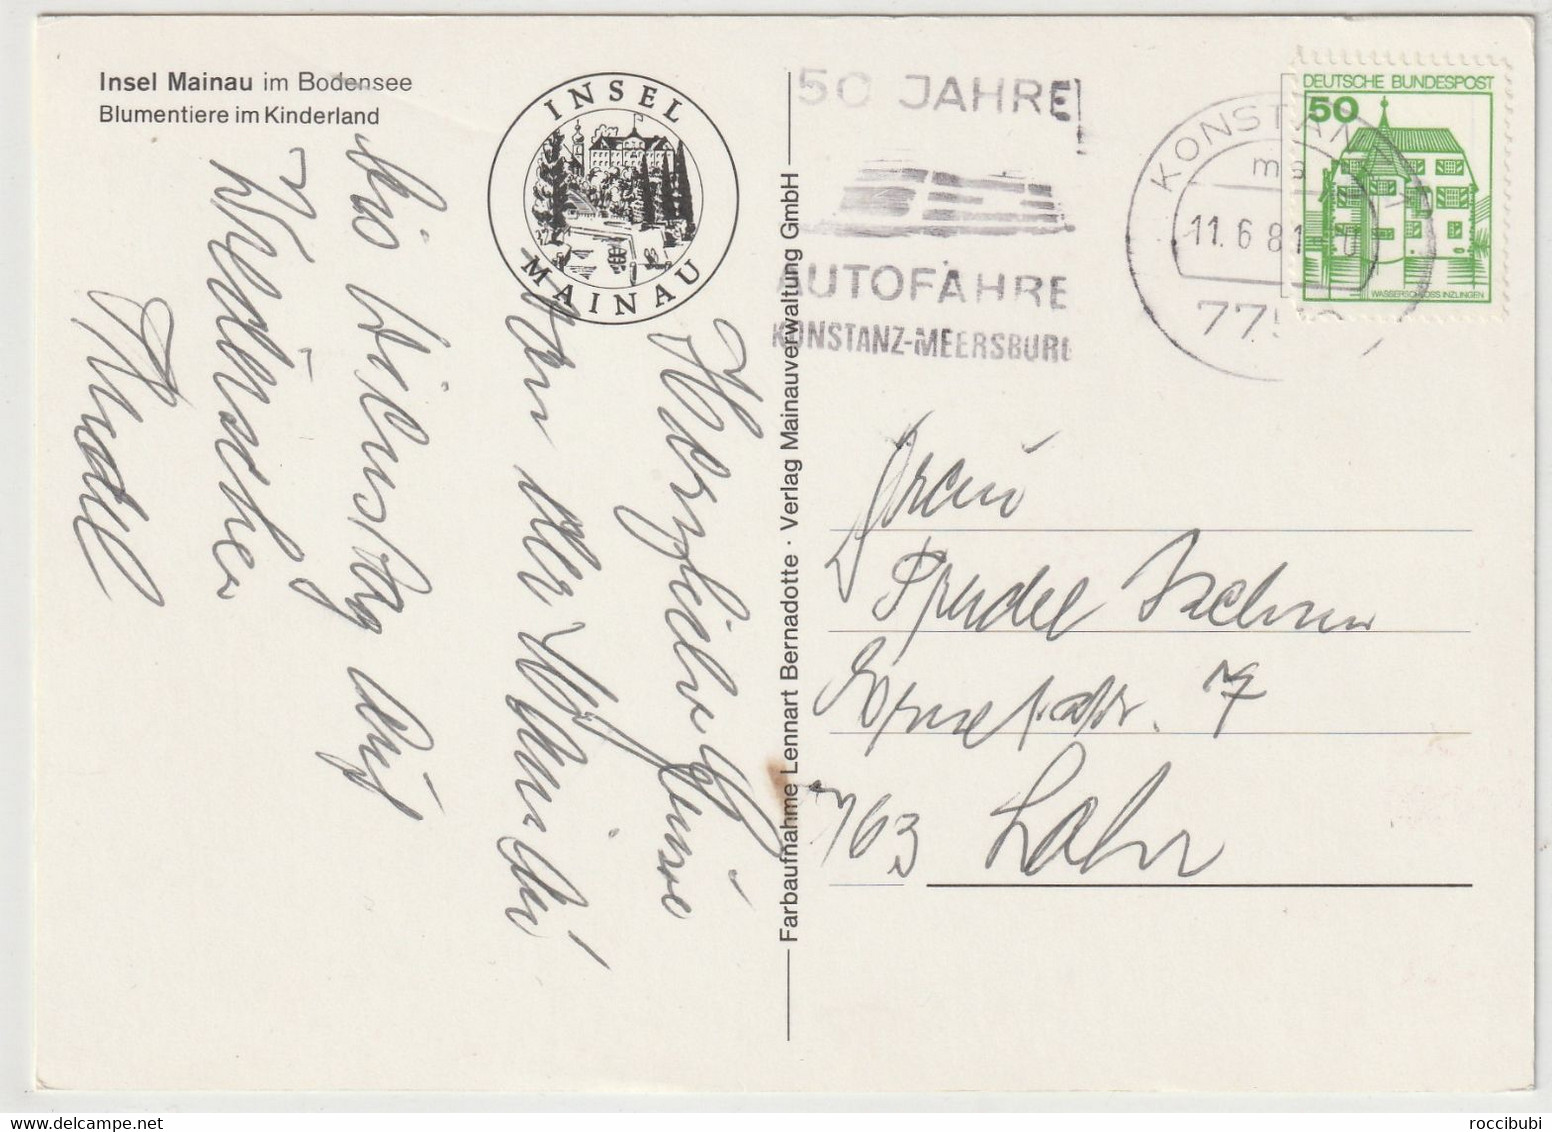 Insel Mainau im Bodensee
Blumentiere im Kinderland
INSEL
MAINAU
Herzliche Grüsse
von der
bis Dienstag
Wiedersehen
Farbaufnahme Lennart Bernadotte · Verlag Mainauverwaltung GmbH
50 JAHRE
AUTOFÄHRE
KONSTANZ-MEERSBURG
KONSTANZ
11.6.81
DEUTSCHE BUNDESPOST
50
WASSERSCHLOSS INZLINGEN
Frau
7
763 Lahr
roccibubi